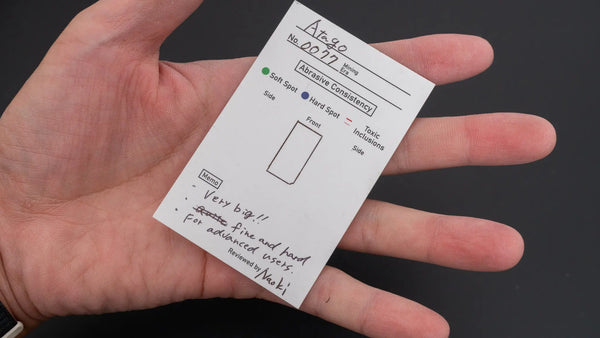 Atago
No. 0077 Mining Era
Abrasive Consistency
Soft Spot Hard Spot Toxic Inclusions
Side Front Side
Memo
- Very big!!
· fine and hard
· For advanced users.
Reviewed by Naoki